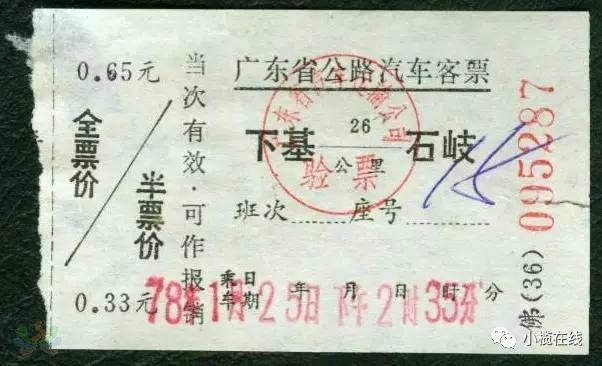 广东省公路汽车客票
下基 26公里 石岐
班次 座号
验票
当次有效·可作报销
0.65元
全票价
半票价
0.33元
乘车日期 年 月 日 时 分
78年1月25日下午2时35分
095287
佛(36)
小榄在线